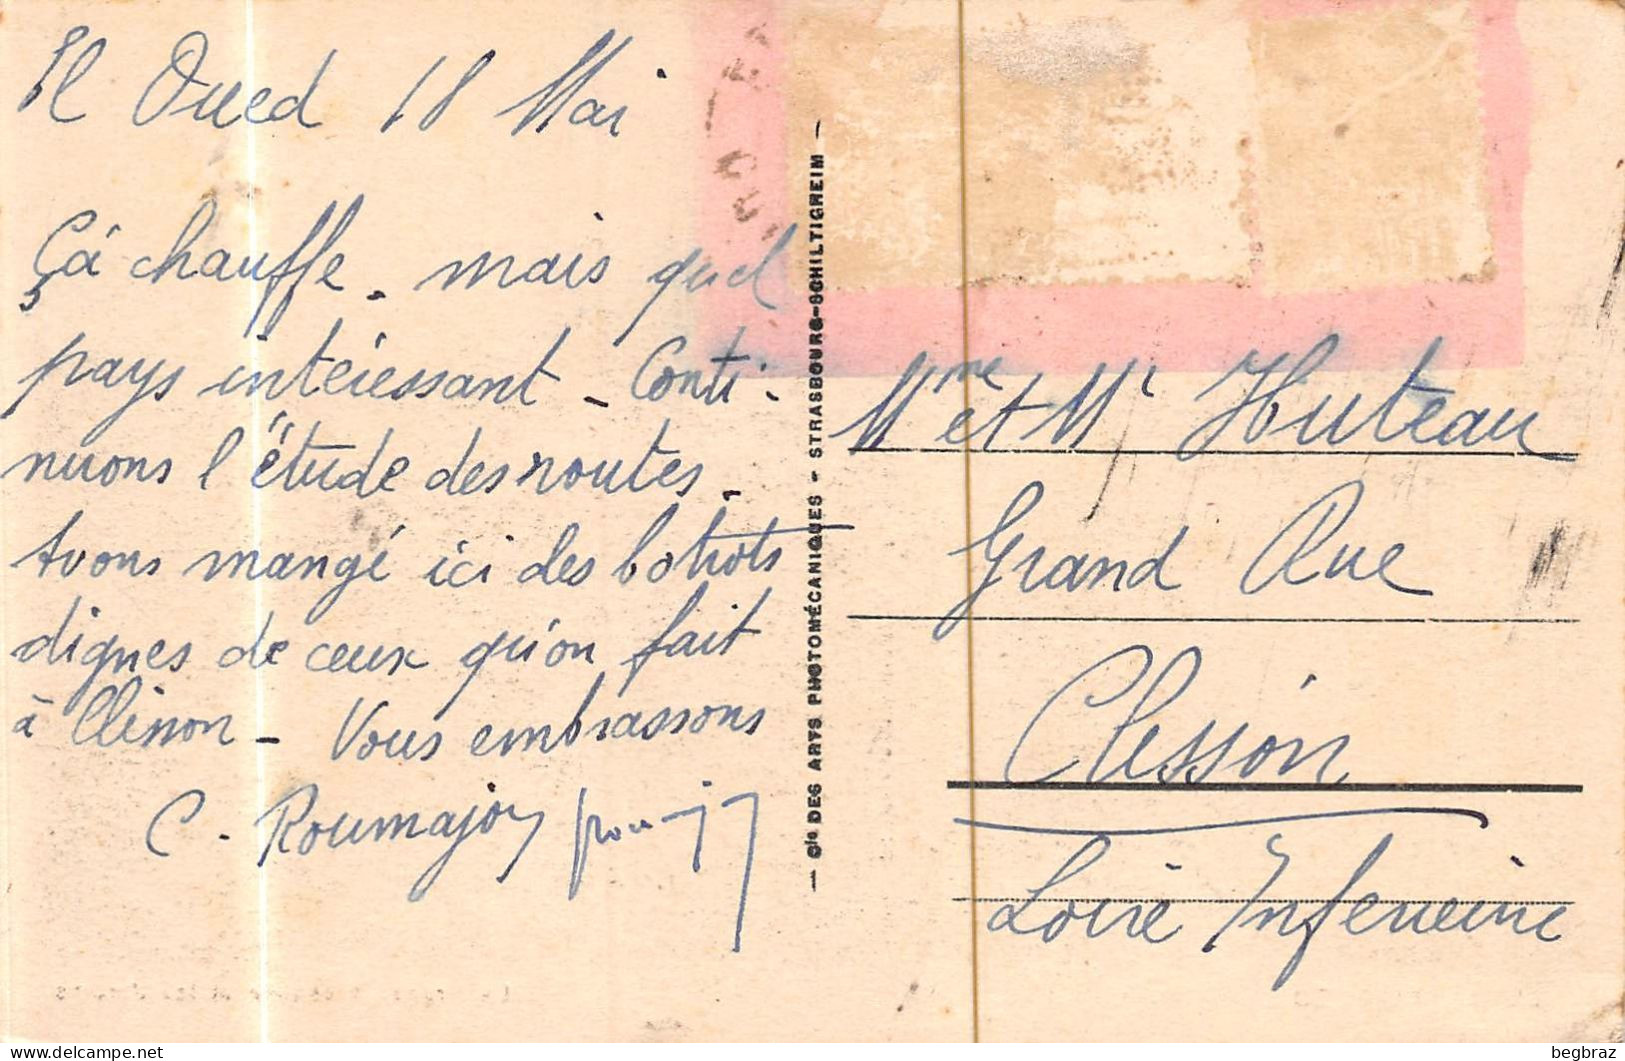 El Oued 18 Mai
Çà chauffe. mais quel
pays intéressant - Conti-
nuons l'étude des routes.
Avons mangé ici des
dignes de ceux qu'on fait
à Clisson - Vous embrassons
C. Roumajoy
— Cie DES ARTS PHOTOMÉCANIQUES - STRASBOURG-SCHILTIGHEIM —
Mme et Mr Huteau
Grand Rue
Clisson
Loire Inférieure
begbraz